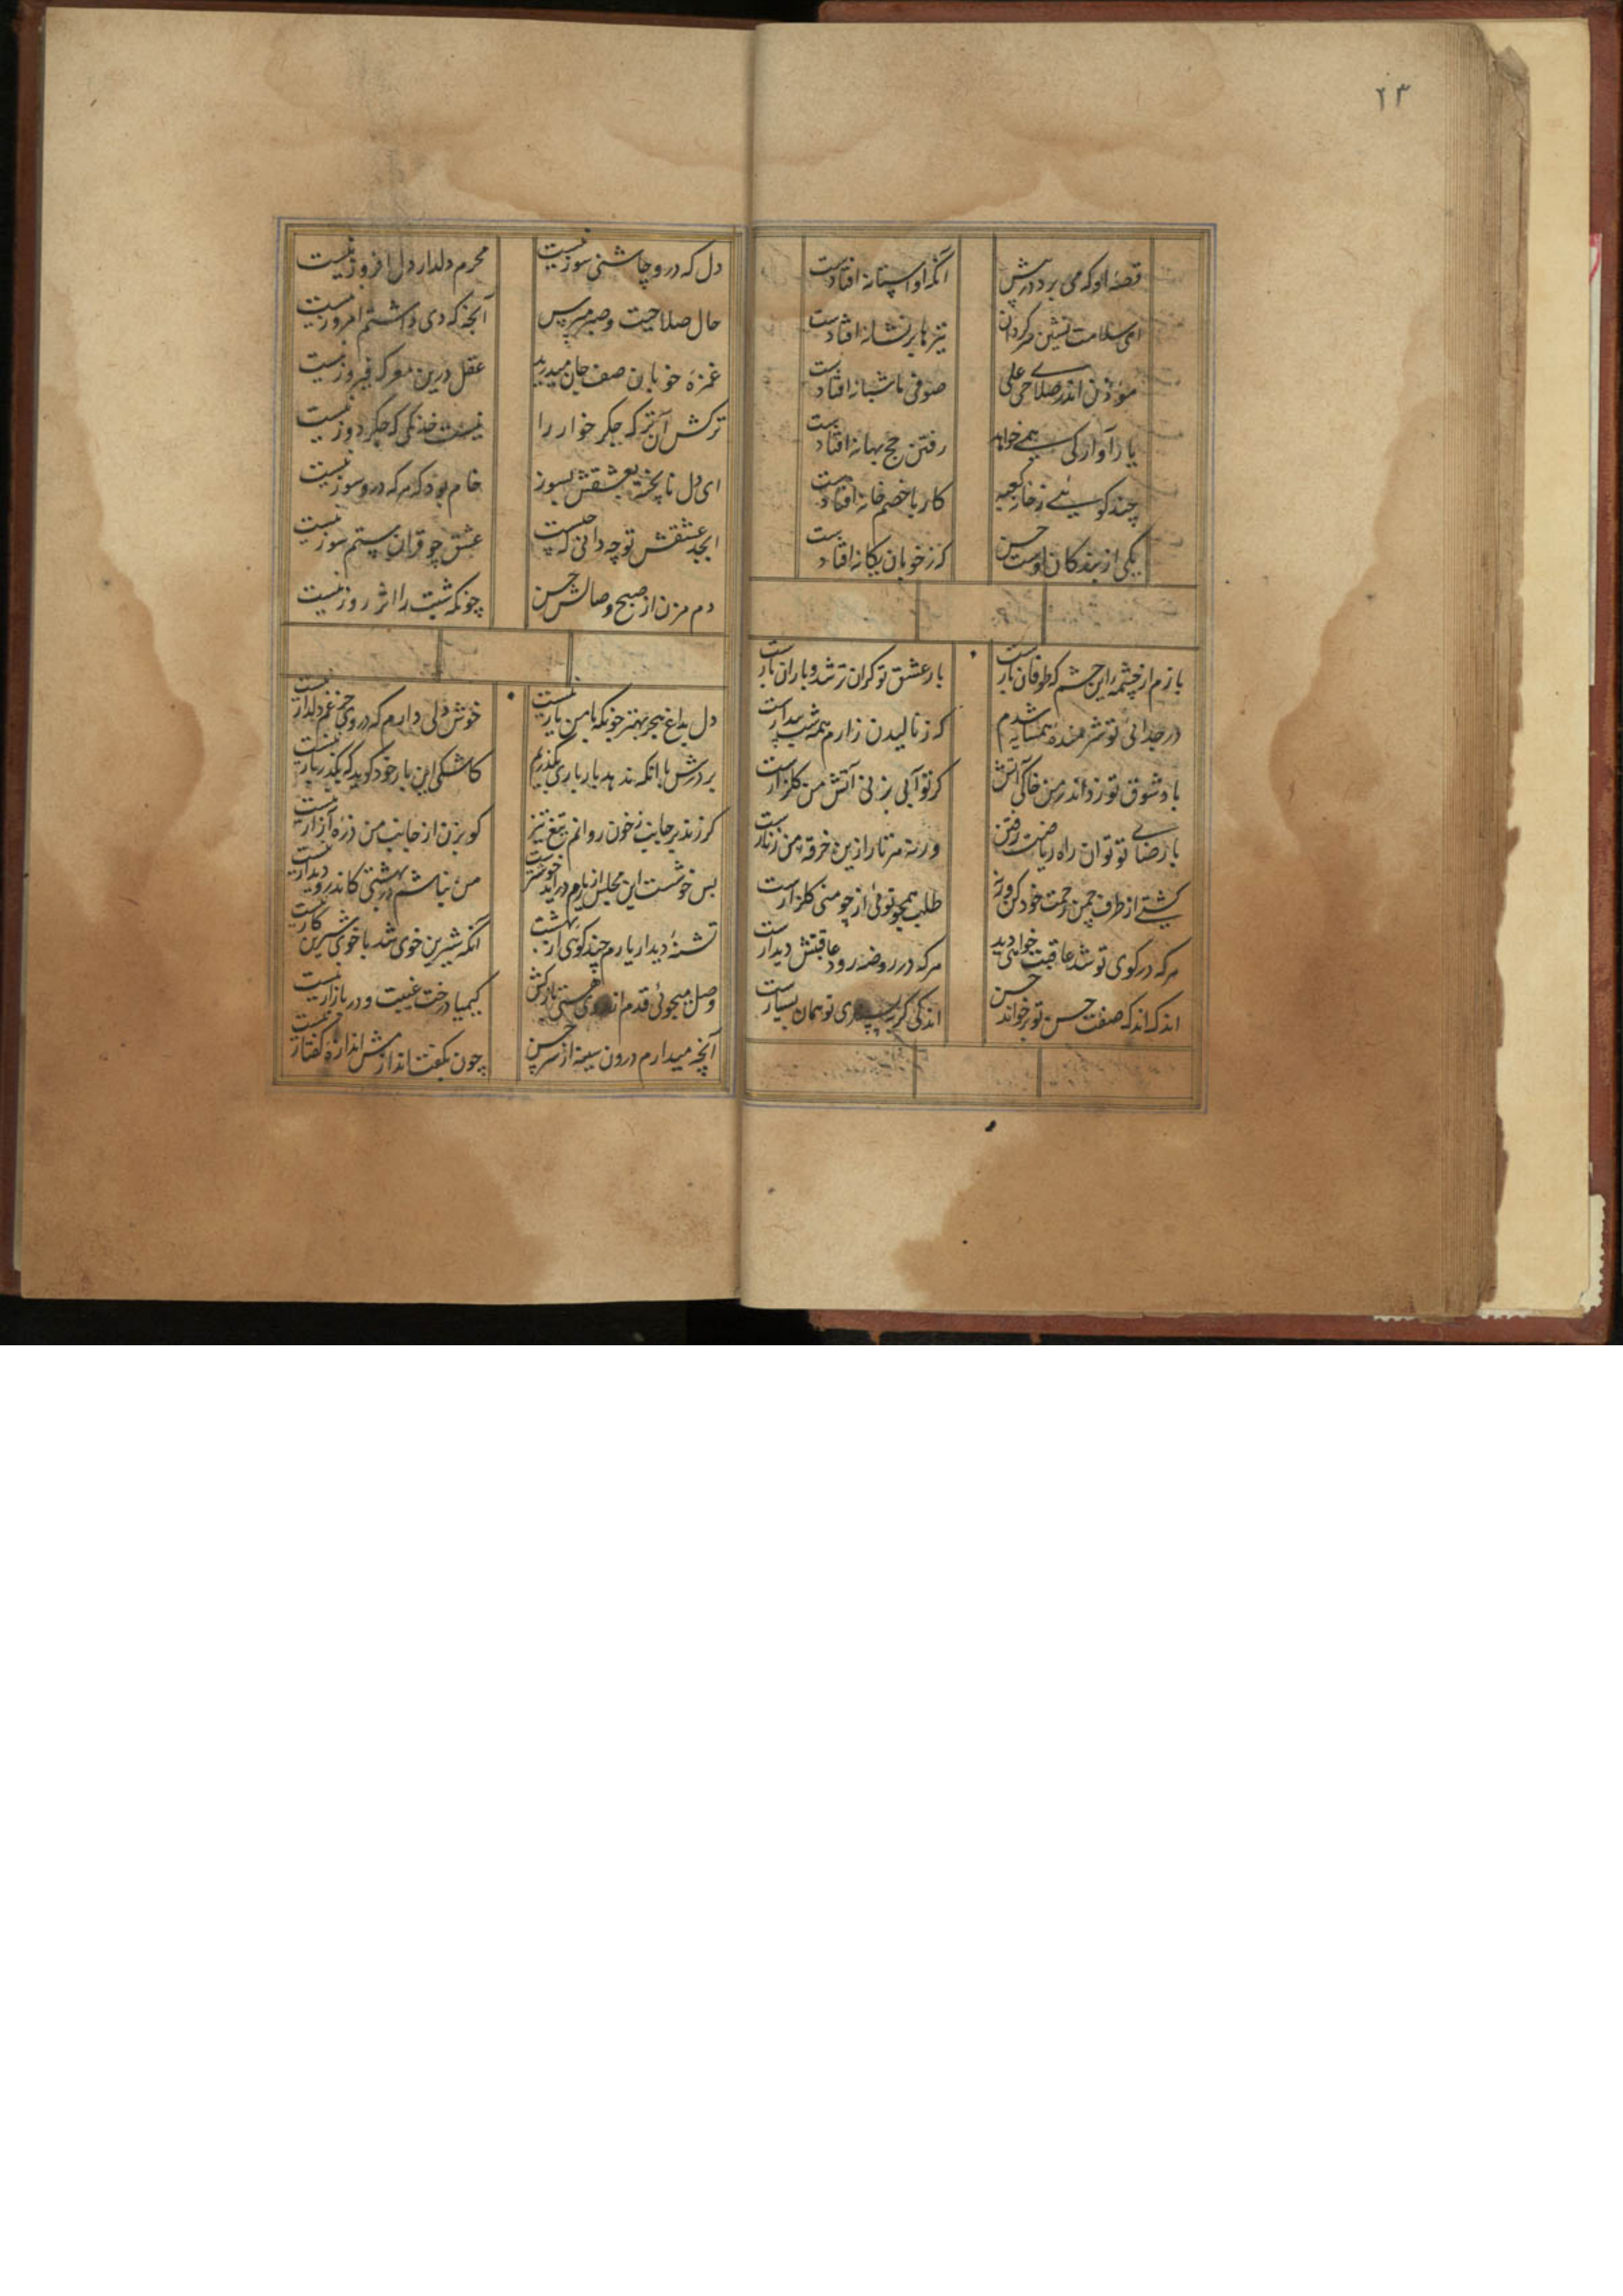 ۲۳
قصهٔ او که می برد درپیش
آنکه او آستانه افتادست
ای سلامت نشین مرکردان
تیرها بر نشانه افتادست
موذن اندر صلای حی علی
صوفی ما شبانه افتادست
یار آواز کی همی خواهد
رفتن حج بهانه افتادست
چند کوئی ز خانهٔ کعبه
کار با خصم خانه افتادست
یکی از بندکان اوست حسن
که ز خوبان یکانه افتادست
بازم از چشمهٔ این چشم که طوفان بارست
بار عشق تو کران تر شد و باران بارست
در جدائی تو شرمندهٔ همسایه شدم
که ز نالیدن زارم همه شب بیدارست
باد شوق تو زد اندر من خاکی آتش
کر تو آبی بزنی آتش من کلزارست
با رضای تو توان راه ریاضت رفتن
ورنه هر تار ازین خرقهٔ من زنارست
کشتی از طرف چمن رحمت خود کن ورنه
طلب همچو توئی از چو منی کلزارست
هرکه در کوی تو شد عاقبت خواهی دید
هرکه در روضه رود عاقبتش دیدارست
اندک اندک صفت حسن تو برخواند حسن
اندکی کر تو همان بسیارست
دل که درو چاشنی سوز نیست
محرم دلدار دل افروز نیست
حال صلاحیت و صبرم مپرس
آنچه که دی داشتم امروز نیست
غمزهٔ خوبان صف جان میدرید
عقل درین معرکه فیروز نیست
ترکش آن ترک جکر خوار را
نیست خدنکی که جکردوز نیست
ای دل ناپخته بعشقش بسوز
خام بود هرکه درو سوز نیست
ابجد عشقش تو چه دانی که چیست
عشق چو قران ستم سوز نیست
دم مزن از صبح وصالش حسن
چونکه شبت را اثر روز نیست
دل بداغ هجر بهتر چونکه با من یار نیست
خوش دلی دارم که در وی جز غم دلدار نیست
بر درش با آنکه ندهد بار باری بکذرم
کاشکی این بار خود کوید که بکذر بار نیست
کر زند بر جانب خون روانم تیغ تیز
کو بزن از جانب من ذرهٔ آزار نیست
بس خوشست این مجلس ار یارم درآید خوشترست
من نباشم در بهشتی کاندرو دیدار نیست
تشنهٔ دیدار یارم چند کوی از بهشت
آنکه شیرین خوی شد با خوی شیرین کار نیست
وصل میجوئی قدم هستی بازکش
کیمیا در تخت غیبت و در بازار نیست
آنچه میدارم درون سینه از سر حسن
چون بکفت اندازمش اندازهٔ کفتار نیست